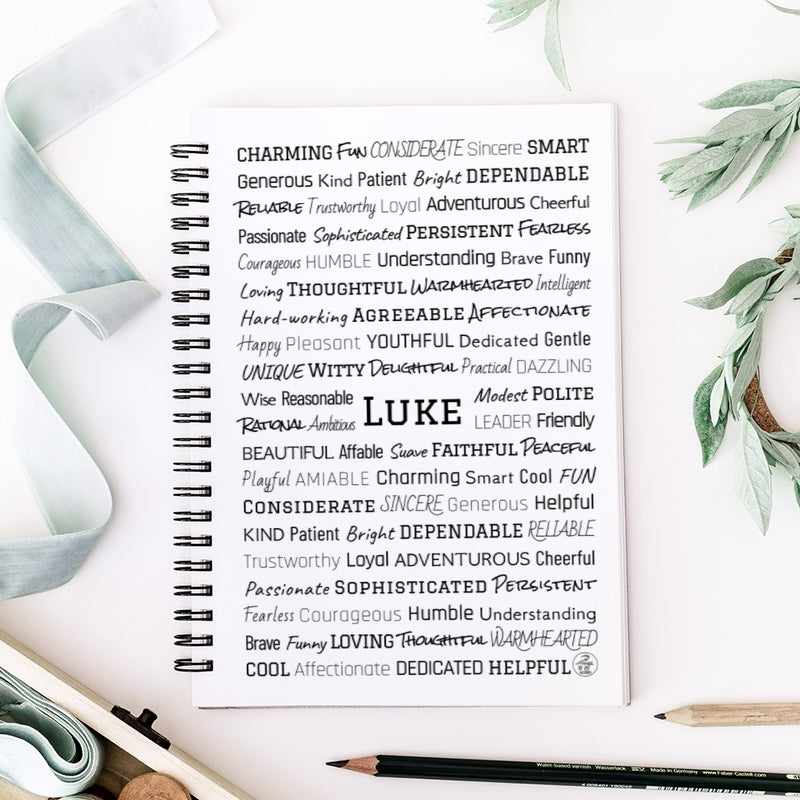 CHARMING Fun CONSIDERATE Sincere SMART
Generous Kind Patient Bright DEPENDABLE
RELIABLE Trustworthy Loyal Adventurous Cheerful
Passionate Sophisticated PERSISTENT FEARLESS
Courageous HUMBLE Understanding Brave Funny
Loving THOUGHTFUL WARMHEARTED Intelligent
Hard-working AGREEABLE AFFECTIONATE
Happy Pleasant YOUTHFUL Dedicated Gentle
UNIQUE WITTY DELIGHTFUL Practical DAZZLING
Wise Reasonable Modest POLITE
LUKE
RATIONAL Ambitious LEADER Friendly
BEAUTIFUL Affable Suave FAITHFUL PEACEFUL
Playful AMIABLE Charming Smart Cool FUN
CONSIDERATE SINCERE Generous Helpful
KIND Patient Bright DEPENDABLE RELIABLE
Trustworthy Loyal ADVENTUROUS Cheerful
Passionate SOPHISTICATED PERSISTENT
Fearless Courageous Humble Understanding
Brave Funny LOVING THOUGHTFUL WARMHEARTED
COOL Affectionate DEDICATED HELPFUL
Water-based varnish Wasserlack Made in Germany www.Faber-Castell.com